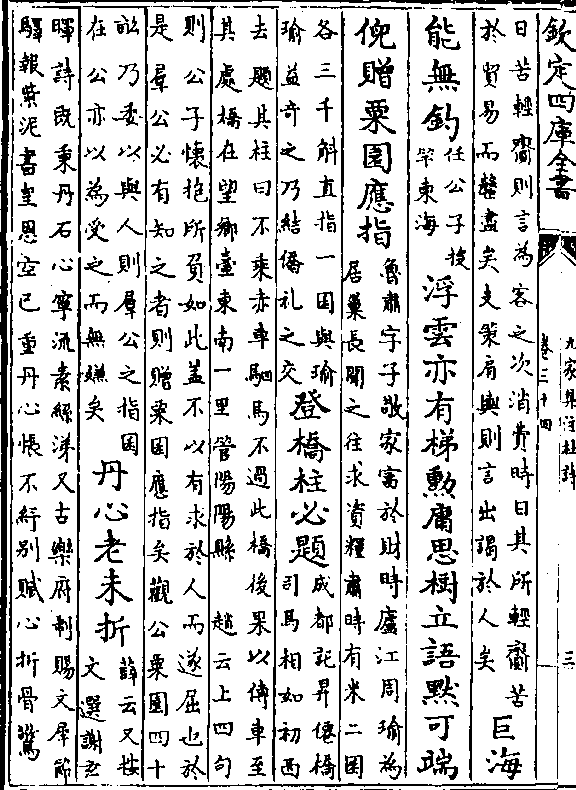 欽定四庫全書
九家集注杜詩
卷三十四
三
日苦輕齎則言為客之次消費時日其所輕齎苦
於貿易而罄盡矣支策肩輿則言出謁於人矣
巨海
能無釣
任公子投
竿東海
浮雲亦有梯勲庸思樹立語黙可端
倪贈粟囷應指
魯肅字子敬家富於財時廬江周瑜為
居巢長聞之往求資糧肅時有米二囷
各三千斛直指一囷與瑜
瑜益奇之乃結僑札之交
登橋柱必題
成都記昇僊橋
司馬相如初西
去題其柱曰不乘赤車駟馬不過此橋後果以傳車至
其處橋在望鄉臺東南一里管陽陽縣 趙云上四句
則公子懷抱所負如此蓋不以有求於人而遂屈也於
是羣公必有知之者則贈粟囷應指矣觀公粟囷四十
訟乃委以與人則羣公之指囷
在公亦以為受之而無嫌矣
丹心老未折
薛云又按
文選謝玄
暉詩既秉丹石心寧流素絲涕又古樂府制賜文犀節
驛報紫泥書皇恩空已重丹心悵不紓别賦心折骨驚